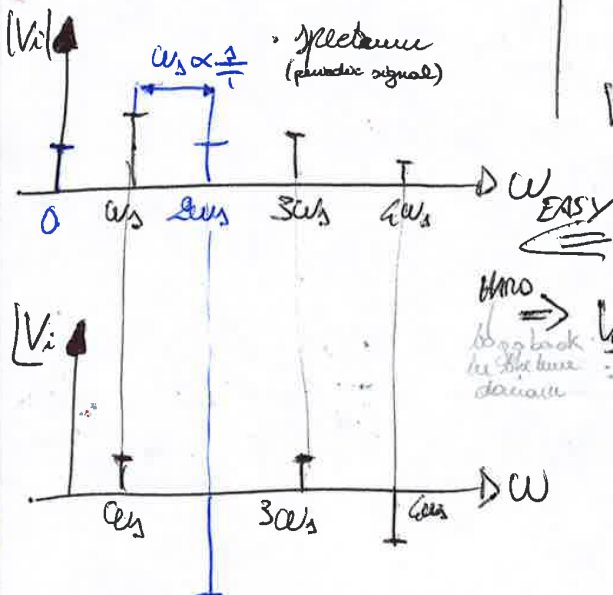 |Vi|
ω₁ ∝ 1/T
· Spectrum
(periodic signal)
0 ω₁ 2ω₁ 3ω₁ 4ω₁ ω
EASY
HARD
to go back
in the time
domain
∠Vi
ω₁ 3ω₁ 4ω₁ ω